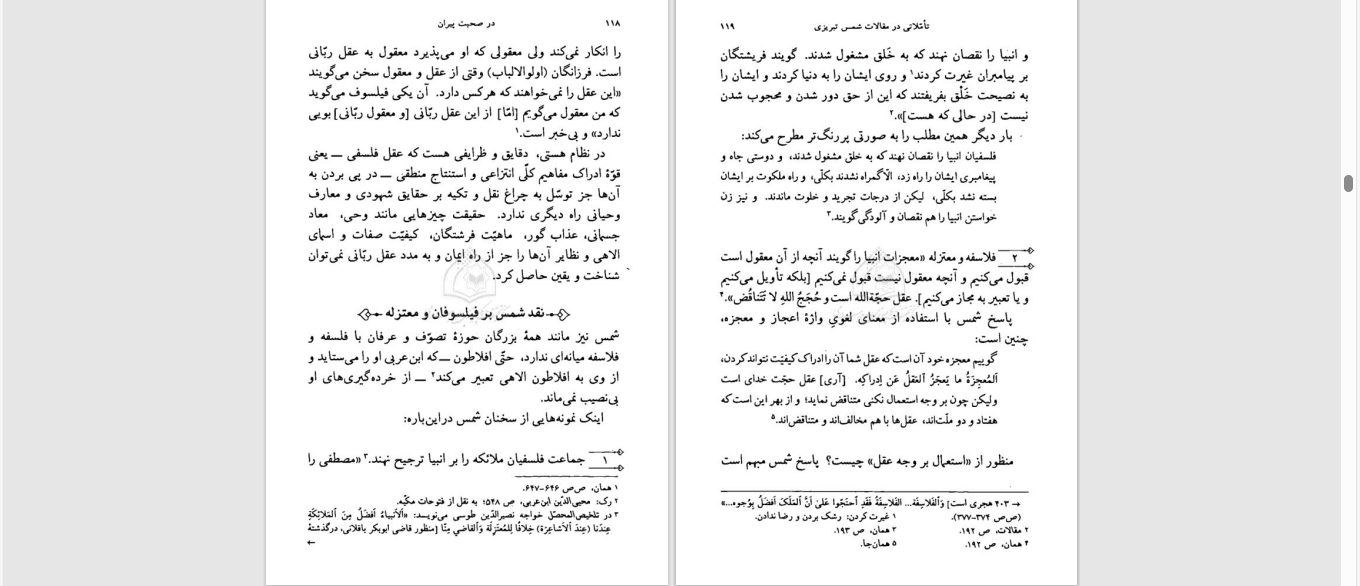 در صحبت پیران ۱۱۸
را انکار نمی‌کند ولی معقولی که او می‌پذیرد معقول به عقل ربّانی
است. فرزانگان (اولوالالباب) وقتی از عقل و معقول سخن می‌گویند
«این عقل را نمی‌خواهند که هرکس دارد. آن یکی فیلسوف می‌گوید
که من معقول می‌گویم [امّا] از این عقل ربّانی [و معقول ربّانی] بویی
ندارد» و بی‌خبر است.۱
در نظام هستی، دقایق و ظرایفی هست که عقل فلسفی ــ یعنی
قوّهٔ ادراک مفاهیم کلّی انتزاعی و استنتاج منطقی ــ در پی بردن به
آن‌ها جز توسّل به چراغ نقل و تکیه بر حقایق شهودی و معارف
وحیانی راه دیگری ندارد. حقیقت چیزهایی مانند وحی، معاد
جسمانی، عذاب گور، ماهیّت فرشتگان، کیفیّت صفات و اسمای
الاهی و نظایر آن‌ها را جز از راه ایمان و به مدد عقل ربّانی نمی‌توان
شناخت و یقین حاصل کرد.
نقد شمس بر فیلسوفان و معتزله
شمس نیز مانند همهٔ بزرگان حوزهٔ تصوّف و عرفان با فلسفه و
فلاسفه میانه‌ای ندارد، حتّی افلاطون ــ که ابن‌عربی او را می‌ستاید و
از وی به افلاطون الاهی تعبیر می‌کند۲ ــ از خرده‌گیری‌های او
بی‌نصیب نمی‌ماند.
اینک نمونه‌هایی از سخنان شمس دراین‌باره:
۱ جماعت فلسفیان ملائکه را بر انبیا ترجیح نهند.۳ «مصطفی را
۱ همان، ص‌ص ۶۴۶-۶۴۷.
۲ رک: محیی‌الدّین ابن‌عربی، ص ۵۴۸؛ به نقل از فتوحات مکیّه.
۳ در تلخیص‌المحصّل خواجه نصیرالدّین طوسی می‌نویسد: «اَلاَنبیاءُ اَفضَلُ مِنَ اَلمَلائِکَةِ
عِندَنا (عِندَ اَلاَشاعِرَة) خِلافًا لِلمُعتَزِلَة وَاَلقاضي مِنّا [منظور قاضی ابوبکر باقلانی، درگذشتهٔ
←
تأمّلاتی در مقالات شمس تبریزی ۱۱۹
و انبیا را نقصان نهند که به خَلق مشغول شدند. گویند فریشتگان
بر پیامبران غیرت کردند۱ و روی ایشان را به دنیا کردند و ایشان را
به نصیحت خَلْق بفریفتند که این از حق دور شدن و محجوب شدن
نیست [در حالی که هست]».۲
بار دیگر همین مطلب را به صورتی پررنگ‌تر مطرح می‌کند:
فلسفیان انبیا را نقصان نهند که به خلق مشغول شدند، و دوستی جاه و
پیغامبری ایشان را راه زد، الّاگمراه نشدند بکلّی، و راه ملکوت بر ایشان
بسته نشد بکلّی، لیکن از درجات تجرید و خلوت ماندند. و نیز زن
خواستن انبیا را هم نقصان و آلودگی گویند.۳
۲ فلاسفه و معتزله «معجزات انبیا را گویند آنچه از آن معقول است
قبول می‌کنیم و آنچه معقول نیست قبول نمی‌کنیم [بلکه تأویل می‌کنیم
و یا تعبیر به مجاز می‌کنیم]. عقل حجّةالله است و حُجَجُ اللهِ لا تَتَناقَض».۴
پاسخ شمس با استفاده از معنای لغویِ واژهٔ اعجاز و معجزه،
چنین است:
گوییم معجزه خود آن است که عقل شما آن را ادراک کیفیّت نتواند کردن،
اَلمُعجِزَةُ ما یَعجَزُ اَلعَقلُ عَن اِدراکِه. [آری] عقل حجّت خدای است
ولیکن چون بر وجه استعمال نکنی متناقض نماید؛ و از بهر این است که
هفتاد و دو ملّت‌اند، عقل‌ها با هم مخالف‌اند و متناقض‌اند.۵
منظور از «استعمال بر وجه عقل» چیست؟ پاسخ شمس مبهم است
→ ۴۰۳ هجری است] وَاَلفَلاسِفَة... اَلفَلاسِفَةُ فَقَدِ اَحتَجّوا عَلیٰ اَنَّ اَلمَلَکَ اَفضَلُ بِوُجوه...»
(ص‌ص ۳۷۴-۳۷۷). ۱ غیرت کردن: رشک بردن و رضا ندادن.
۲ مقالات، ص ۱۹۲. ۳ همان، ص ۱۹۳.
۴ همان، ص ۱۹۲. ۵ همان‌جا.